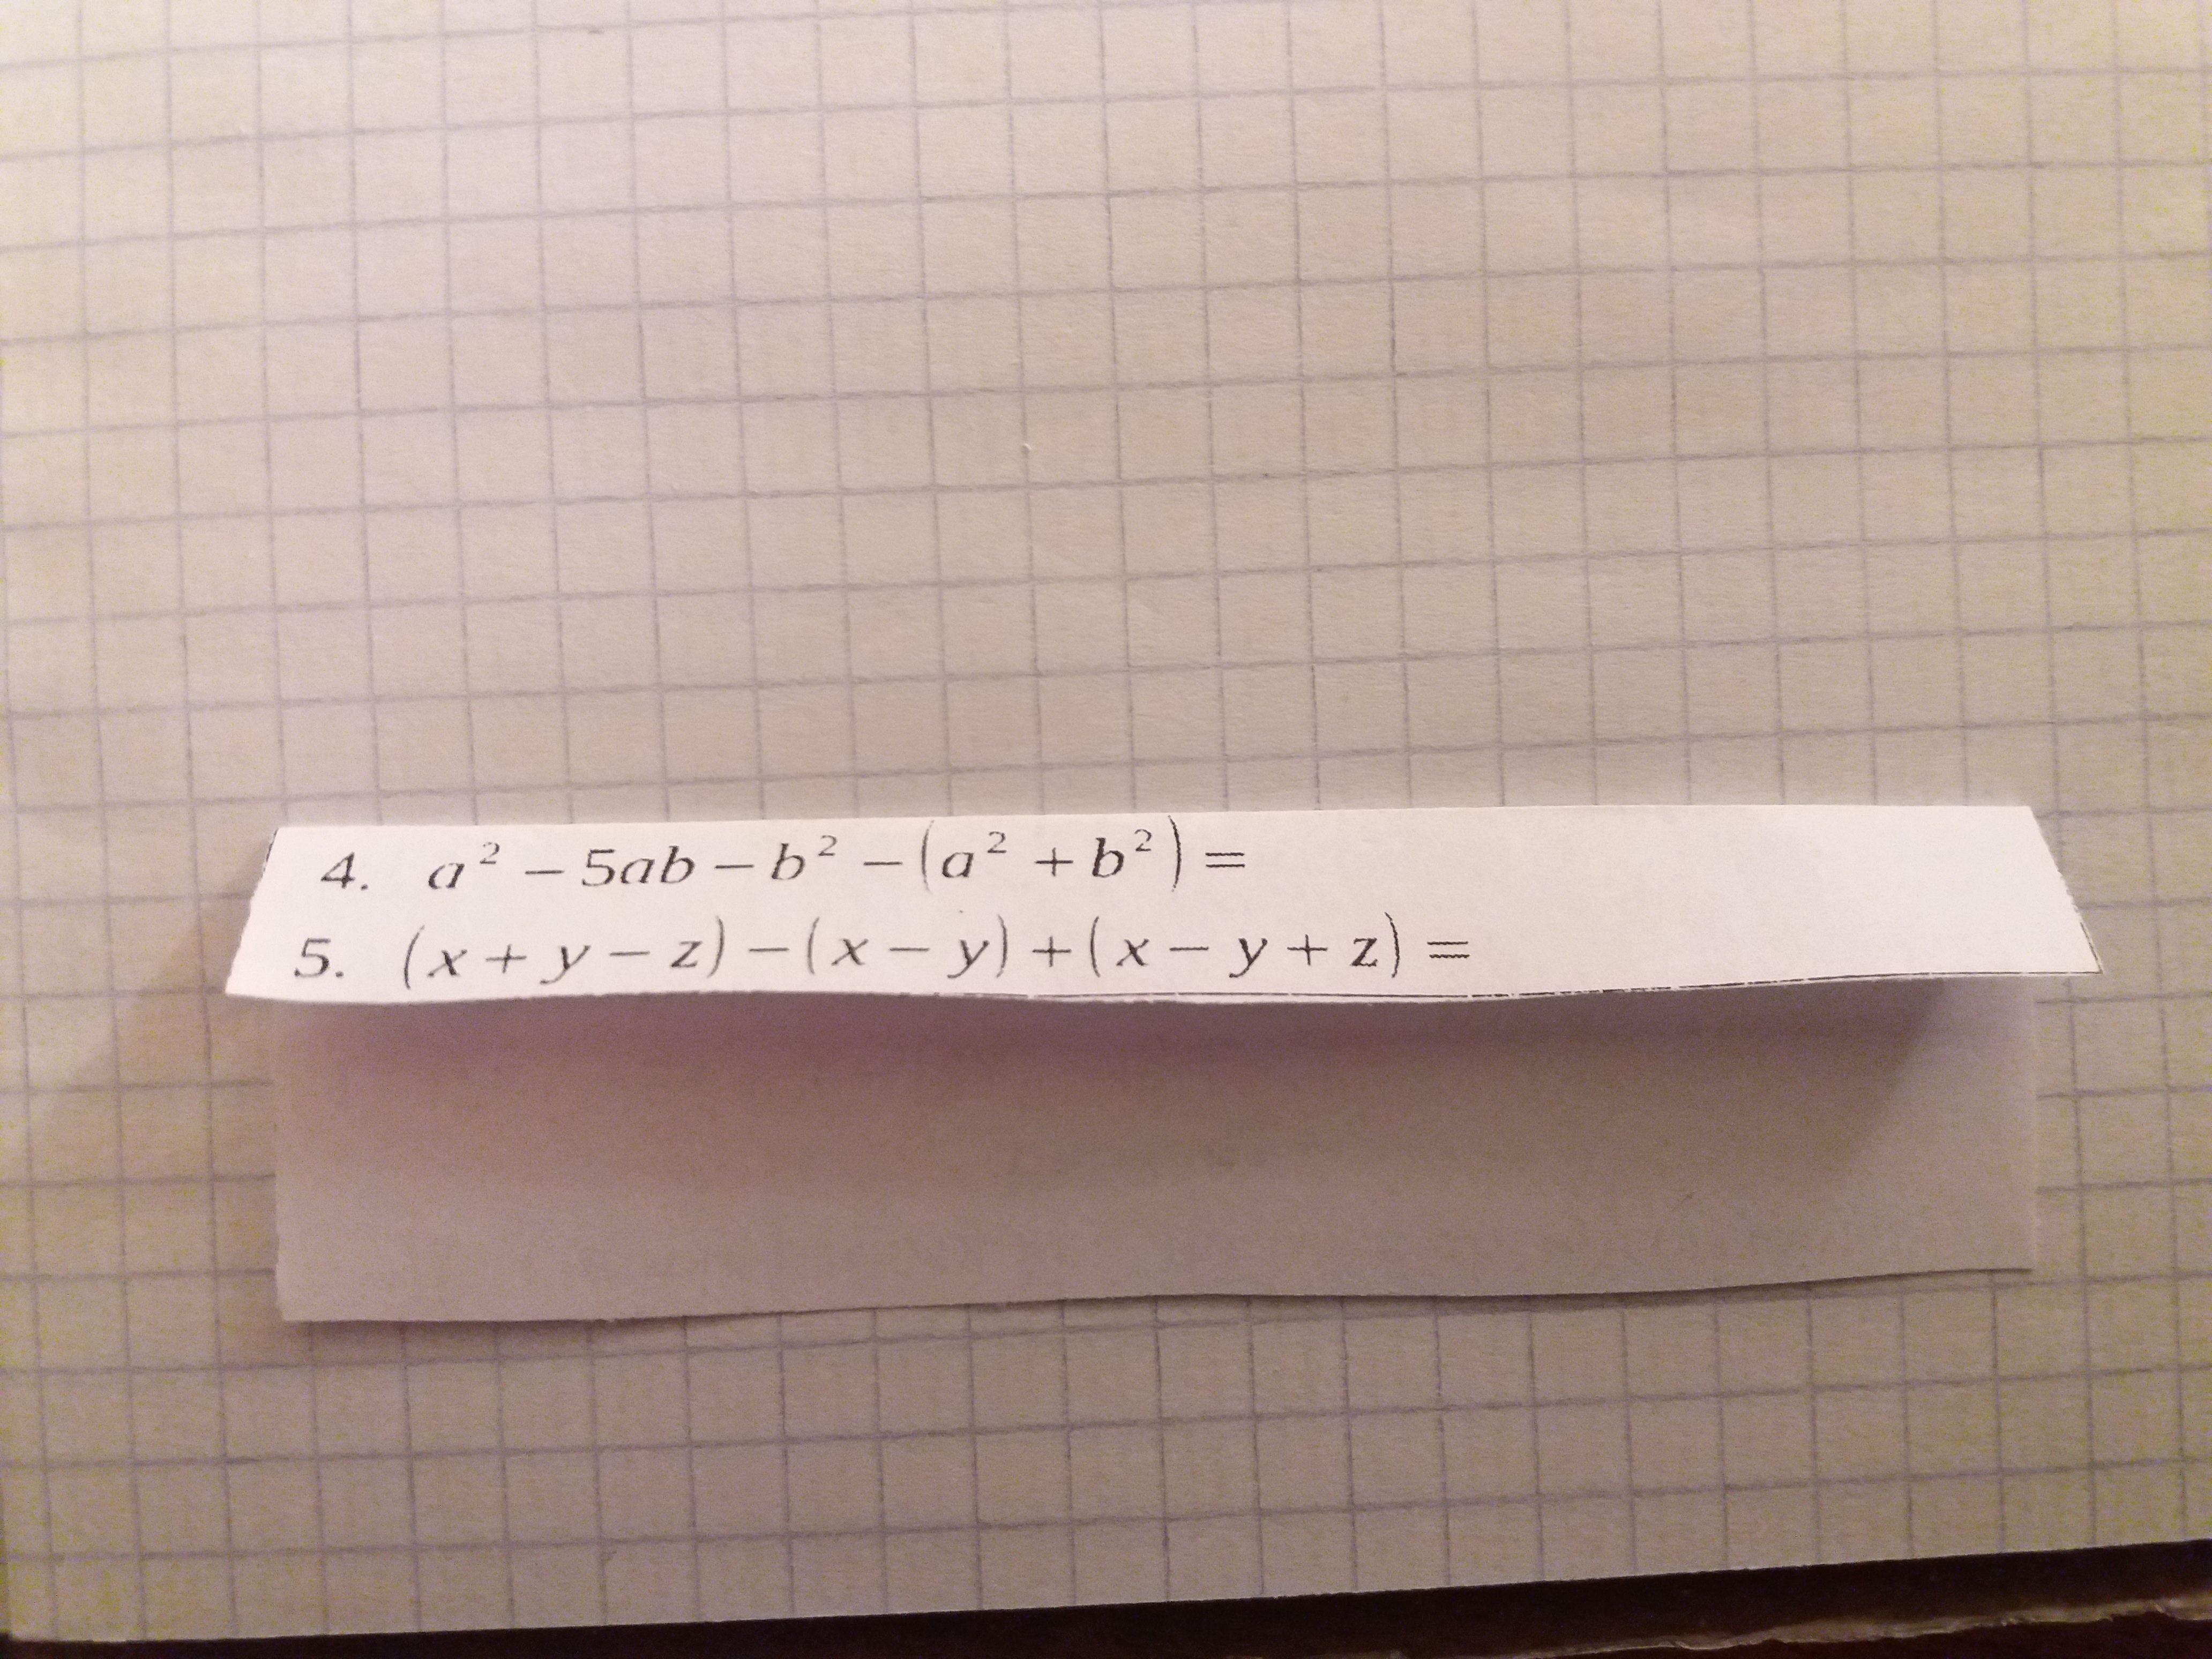 4. a² – 5ab – b² – (a² + b²) =
5. (x + y – z) – (x – y) + (x – y + z) =